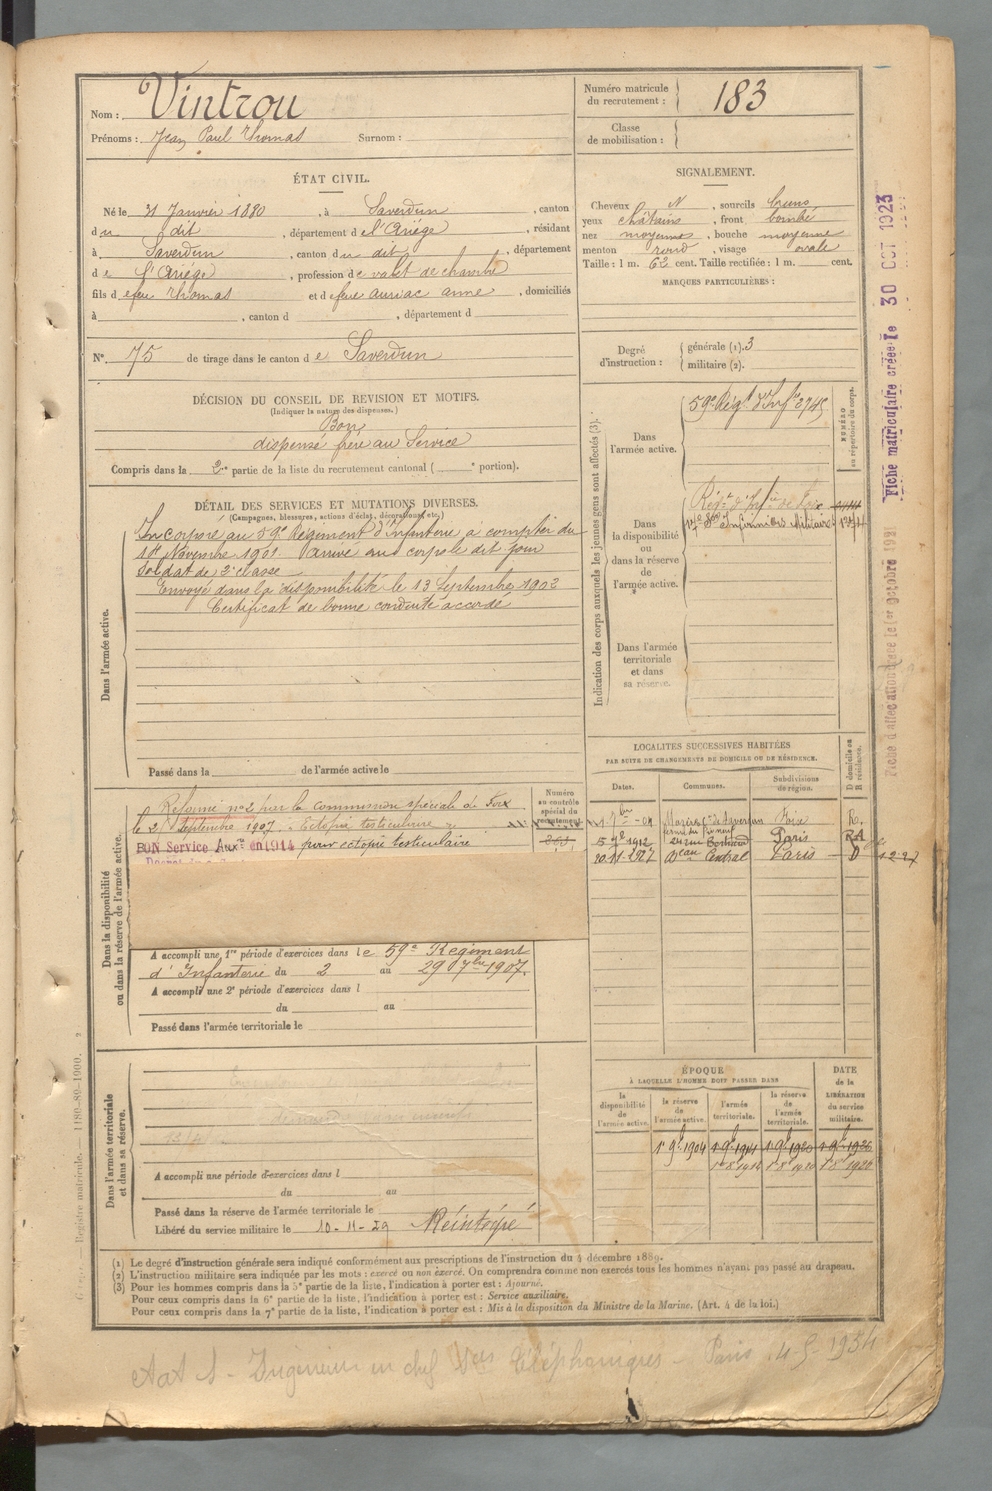 Nom : Vintrou
Prénoms : Jean Paul Thomas Surnom :
Numéro matricule du recrutement : 183
Classe de mobilisation :
ÉTAT CIVIL.
Né le 31 Janvier 1880, à Saverdun, canton
du dit, département de l'Ariège, résidant
à Saverdun, canton du dit, département
de l'Ariège, profession de valet de chambre
fils de feu Thomas et de feue auriac anne, domiciliés
à , canton d , département d
N° 75 de tirage dans le canton de Saverdun
SIGNALEMENT.
Cheveux N, sourcils bruns
yeux châtains, front bombé
nez moyenne, bouche moyenne
menton rond, visage ovale
Taille : 1 m. 62 cent. Taille rectifiée : 1 m. cent.
MARQUES PARTICULIÈRES :
Degré d'instruction : générale (1). 3
militaire (2).
DÉCISION DU CONSEIL DE REVISION ET MOTIFS.
(Indiquer la nature des dispenses.)
Bon
dispensé frère au Service
Compris dans la 2e partie de la liste du recrutement cantonal ( e portion).
DÉTAIL DES SERVICES ET MUTATIONS DIVERSES.
(Campagnes, blessures, actions d'éclat, décorations, etc.)
Dans l'armée active.
Incorporé au 59e Régiment d'Infanterie à compter du
Novembre 1901. Arrivé au corps le dit jour
soldat de 2e classe
Envoyé dans la disponibilité le 13 Septembre 1902
Certificat de bonne conduite accordé
Passé dans la de l'armée active le
Indication des corps auxquels les jeunes gens sont affectés (3).
NUMÉRO au répertoire du corps.
Dans l'armée active.
59e Régt d'Infie 2745
Dans la disponibilité ou dans la réserve de l'armée active.
Régt d'Infie de Foix
17e Son Infirmiers Militaires
Dans l'armée territoriale et dans sa réserve.
Fiche matriculaire créée le 30 OCT 1923
Dans la disponibilité ou dans la réserve de l'armée active.
Réformé n°2 par la Commission spéciale de Foix
le 2 Septembre 1907. "Ectopie testiculaire"
BON Service Auxre en 1914 pour ectopie testiculaire
Numéro au contrôle spécial du recrutement.
A accompli une 1re période d'exercices dans le 59e Regiment
d'Infanterie du 2 au 29 7bre 1907.
A accompli une 2e période d'exercices dans l
du au
Passé dans l'armée territoriale le
LOCALITÉS SUCCESSIVES HABITÉES
PAR SUITE DE CHANGEMENTS DE DOMICILE OU DE RÉSIDENCE.
Dates. Communes. Subdivisions de région. D domicile ou R résidence.
Foix R.
1912 Paris RA
Central Paris D
Dans l'armée territoriale et dans sa réserve.
A accompli une période d'exercices dans l
du au
Passé dans la réserve de l'armée territoriale le
Libéré du service militaire le 10-11-29 Réintégré
ÉPOQUE
A LAQUELLE L'HOMME DOIT PASSER DANS
la disponibilité de l'armée active. la réserve de l'armée active. l'armée territoriale. la réserve de l'armée territoriale.
DATE de la LIBÉRATION du service militaire.
1r 9bre 1904 1r 9bre 1914 1r 9bre 1920 1r 9bre 1926
(1) Le degré d'instruction générale sera indiqué conformément aux prescriptions de l'instruction du 4 décembre 1889.
(2) L'instruction militaire sera indiquée par les mots : exercé ou non exercé. On comprendra comme non exercés tous les hommes n'ayant pas passé au drapeau.
(3) Pour les hommes compris dans la 5e partie de la liste, l'indication à porter est : Ajourné.
Pour ceux compris dans la 6e partie de la liste, l'indication à porter est : Service auxiliaire.
Pour ceux compris dans la 7e partie de la liste, l'indication à porter est : Mis à la disposition du Ministre de la Marine. (Art. 4 de la loi.)
Registre matricule. — 1180-89-1900.
Ingénieur en chef Téléphoniques - Paris 4-5-1934